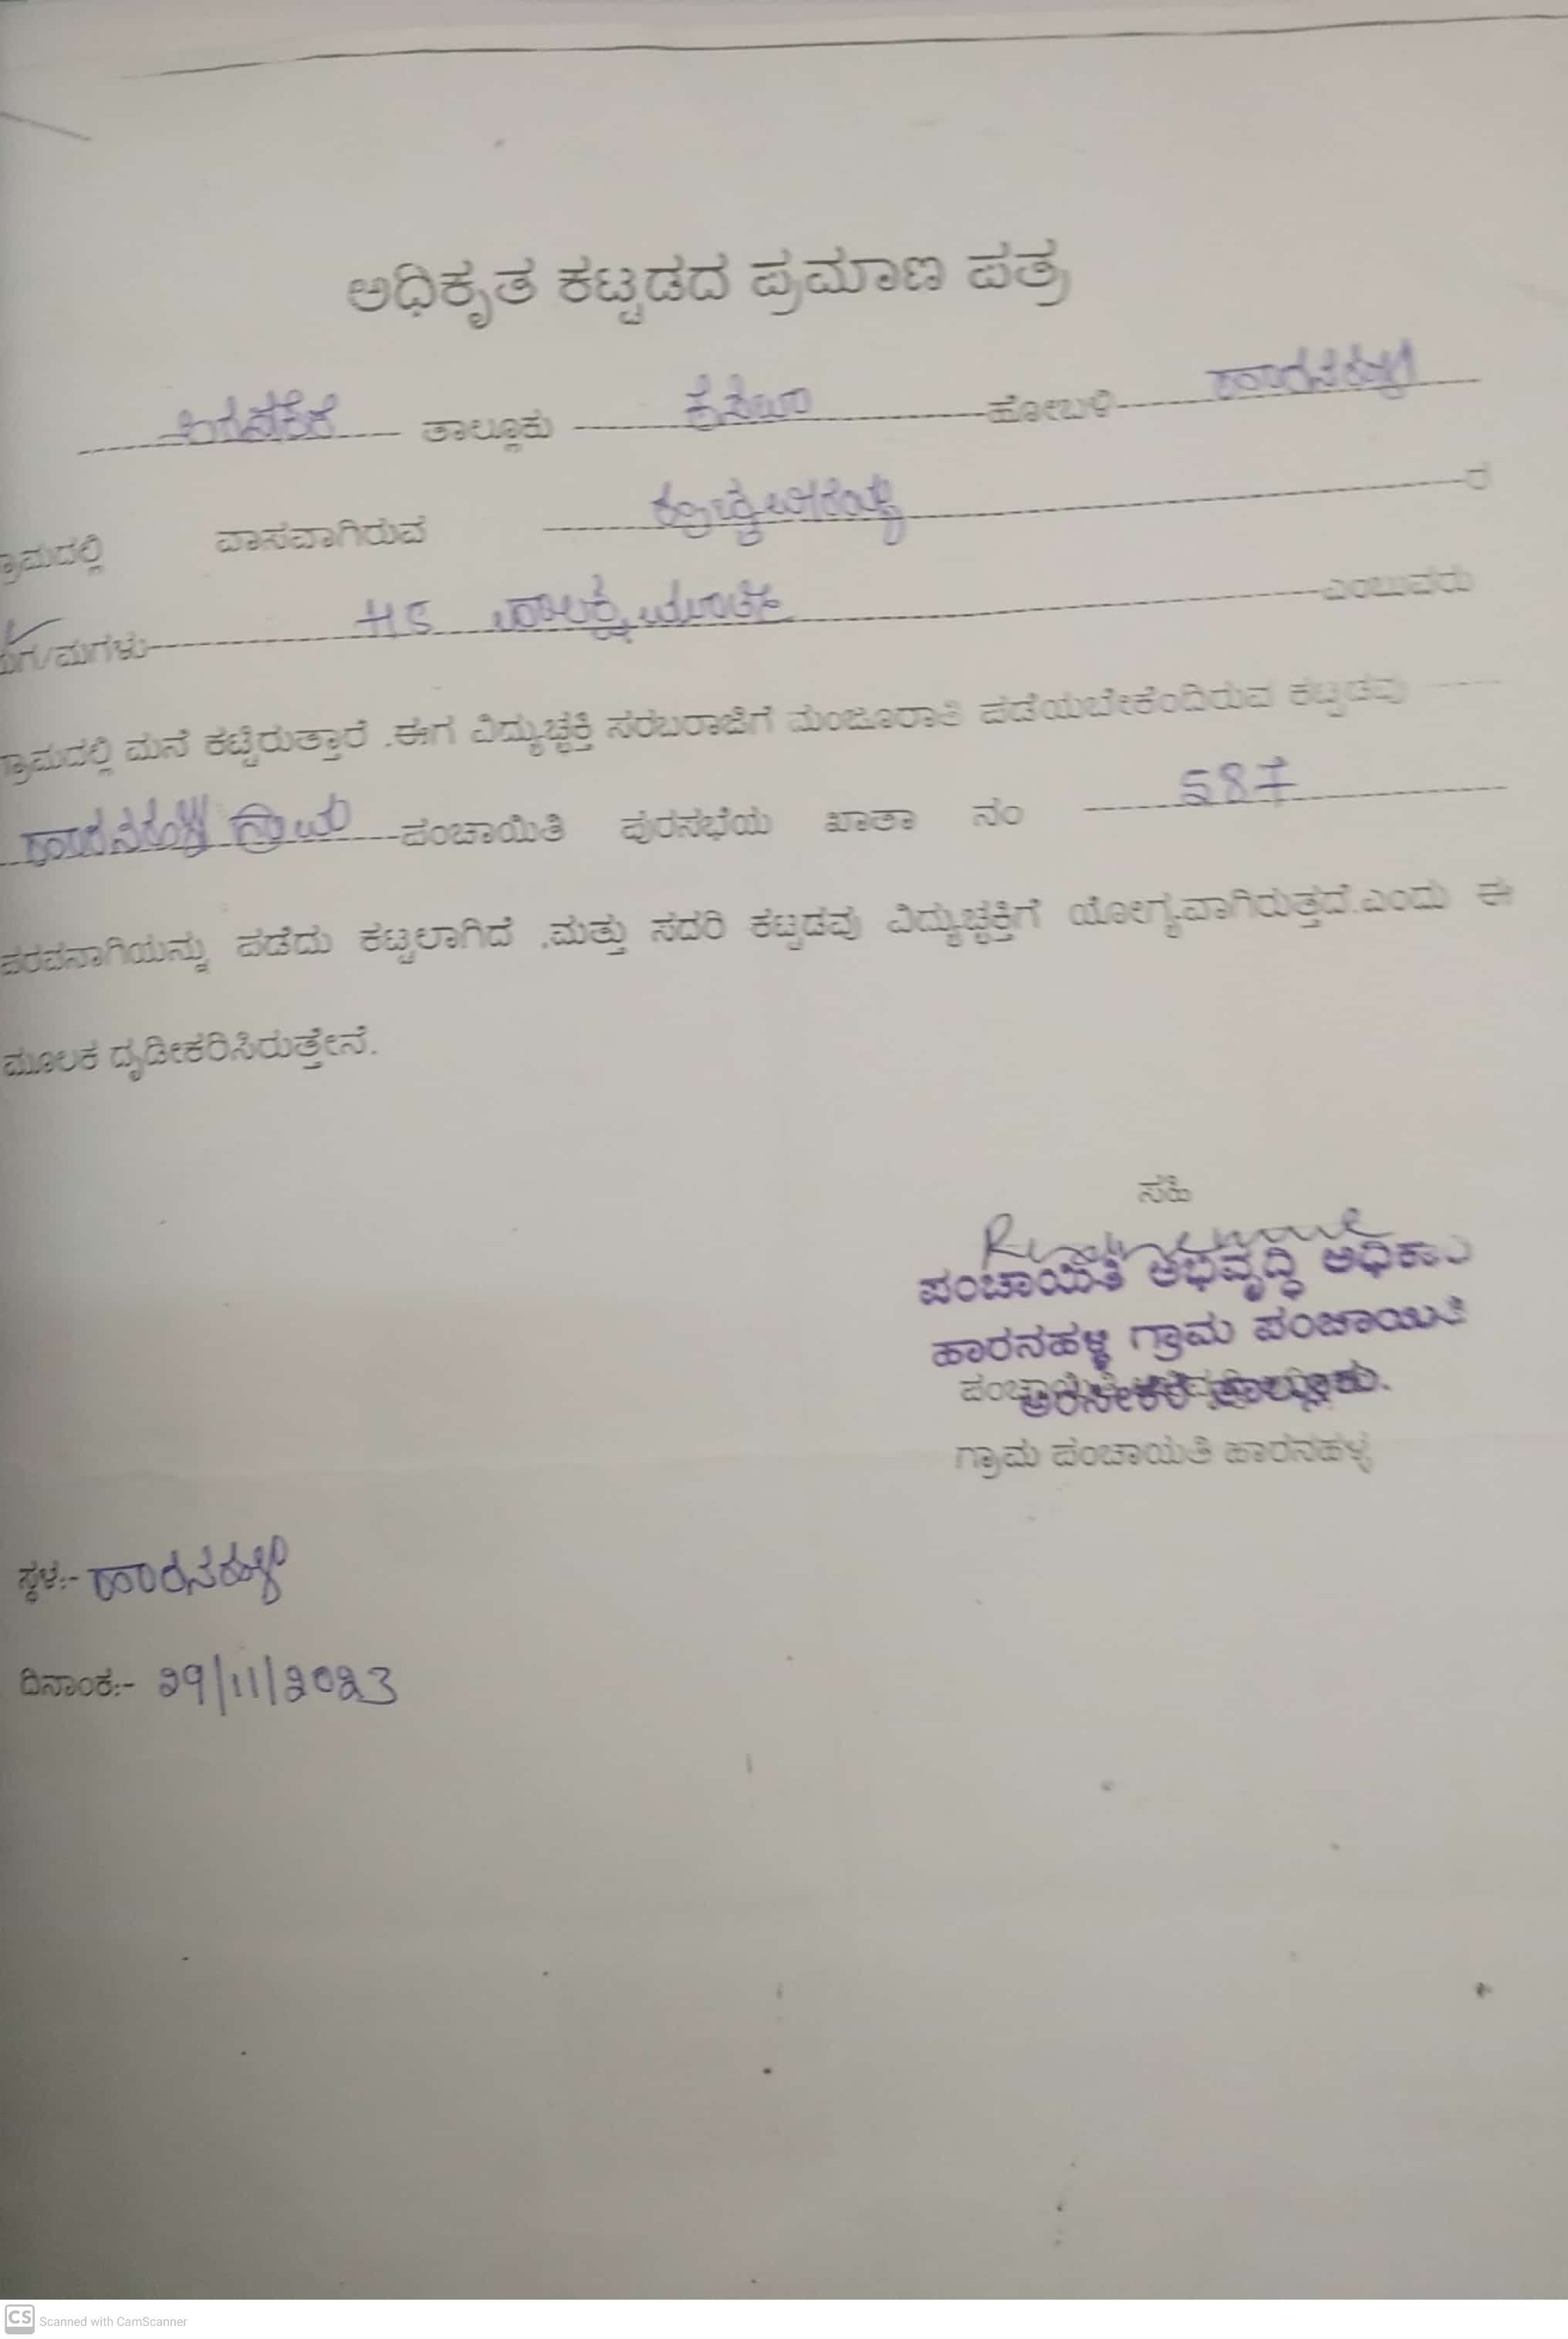 ಅಧಿಕೃತ ಕಟ್ಟಡದ ಪ್ರಮಾಣ ಪತ್ರ
ತಾಲ್ಲೂಕು ಕಸಬಾ ಹೋಬಳಿ ಹಾರನಹಳ್ಳಿ
ಗ್ರಾಮದಲ್ಲಿ ವಾಸವಾಗಿರುವ ರ
ಮಗ/ಮಗಳು HS ಎಂಬುವರು
ಗ್ರಾಮದಲ್ಲಿ ಮನೆ ಕಟ್ಟಿರುತ್ತಾರೆ .ಈಗ ವಿದ್ಯುಚ್ಛಕ್ತಿ ಸರಬರಾಜಿಗೆ ಮಂಜೂರಾತಿ ಪಡೆಯಬೇಕೆಂದಿರುವ ಕಟ್ಟಡವು
ಹಾರನಹಳ್ಳಿ ಗ್ರಾಮ ಪಂಚಾಯಿತಿ ಪುರಸಭೆಯ ಖಾತಾ ನಂ 587
ಪರವನಾಗಿಯನ್ನು ಪಡೆದು ಕಟ್ಟಲಾಗಿದೆ .ಮತ್ತು ಸದರಿ ಕಟ್ಟಡವು ವಿದ್ಯುಚ್ಛಕ್ತಿಗೆ ಯೋಗ್ಯವಾಗಿರುತ್ತದೆ.ಎಂದು ಈ
ಮೂಲಕ ದೃಡೀಕರಿಸಿರುತ್ತೇನೆ.
ಸಹಿ
ಪಂಚಾಯಿತಿ ಅಭಿವೃದ್ಧಿ
ಹಾರನಹಳ್ಳಿ ಗ್ರಾಮ ಪಂಚಾಯಿತಿ
ಅರಸೀಕೆರೆ ತಾಲ್ಲೂಕು.
ಗ್ರಾಮ ಪಂಚಾಯತಿ ಹಾರನಹಳ್ಳಿ
ಸ್ಥಳ:- ಹಾರನಹಳ್ಳಿ
ದಿನಾಂಕ:- 29/11/2023
CS Scanned with CamScanner